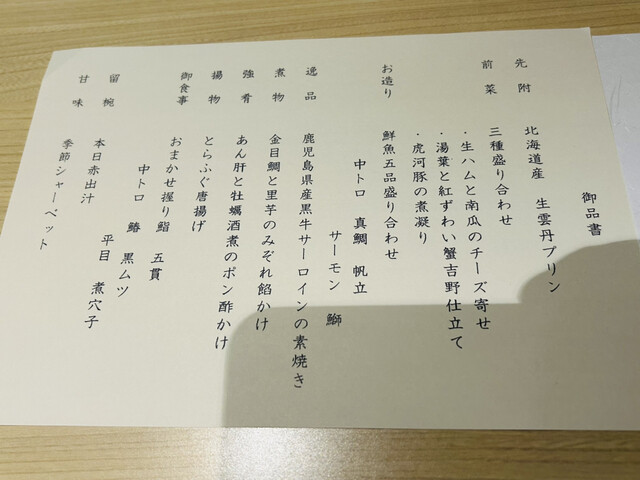 御品書
先附 北海道産 生雲丹プリン
前菜 三種盛り合わせ
・生ハムと南瓜のチーズ寄せ
・湯葉と紅ずわい蟹吉野仕立て
・虎河豚の煮凝り
お造り 鮮魚五品盛り合わせ
中トロ 真鯛 帆立
サーモン 鰤
逸品 鹿児島県産黒牛サーロインの素焼き
煮物 金目鯛と里芋のみぞれ餡かけ
強肴 あん肝と牡蠣酒煮のポン酢かけ
揚物 とらふぐ唐揚げ
御食事 おまかせ握り鮨 五貫
中トロ 鰆 黒ムツ
平目 煮穴子
留椀 本日赤出汁
甘味 季節シャーベット